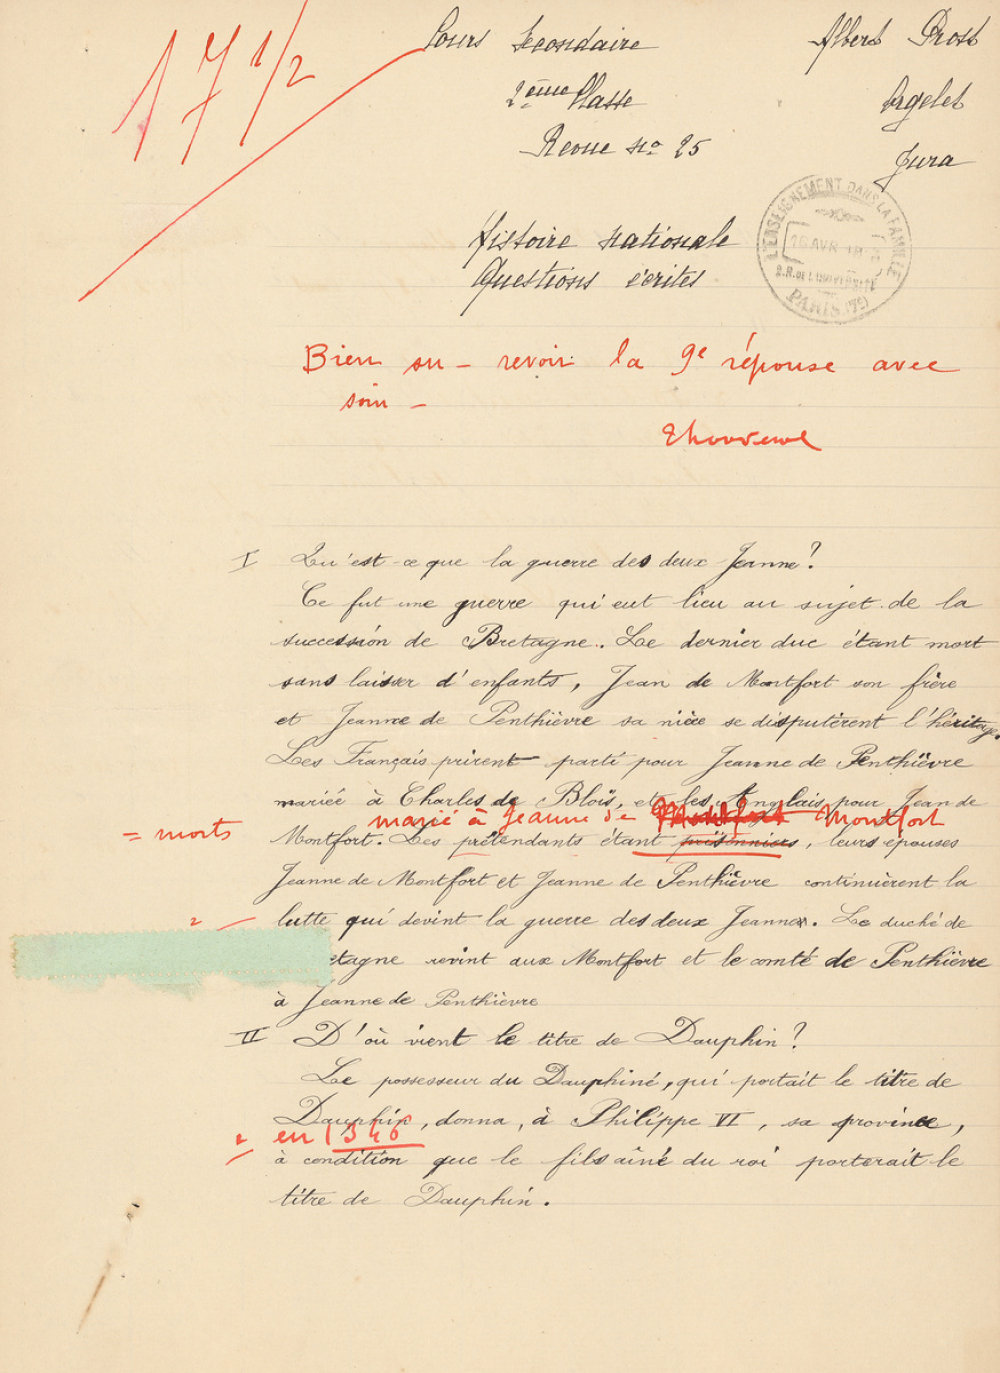 17 1/2
Cours Secondaire
Albert Prost
2ème Classe
Orgelet
Revue no 25
Jura
L'ENSEIGNEMENT DANS LA FAMILLE
16 AVR
2.R. DE L'UNIVERSITÉ
PARIS (7e)
Histoire nationale
Questions écrites
Bien su – revoir la 9e réponse avec
soin –
I Qu'est-ce que la guerre des deux Jeanne?
Ce fut une guerre qui eut lieu au sujet de la
succession de Bretagne. Le dernier duc étant mort
sans laisser d'enfants, Jean de Montfort son frère
et Jeanne de Penthièvre sa nièce se disputèrent l'héritage.
Les Français prirent parti pour Jeanne de Penthièvre
mariée à Charles de Blois, et les Anglais pour Jean de
marié à Jeanne de Montfort
= morts
Montfort. Les prétendants étant prisonniers, leurs épouses
Jeanne de Montfort et Jeanne de Penthièvre continuèrent la
lutte qui devint la guerre des deux Jeanne. Le duché de
etagne revint aux Montfort et le comté de Penthièvre
à Jeanne de Penthièvre
II D'où vient le titre de Dauphin?
Le possesseur du Dauphiné, qui portait le titre de
Dauphin, donna, à Philippe VI, sa province,
en 1346
à condition que le fils aîné du roi porterait le
titre de Dauphin.